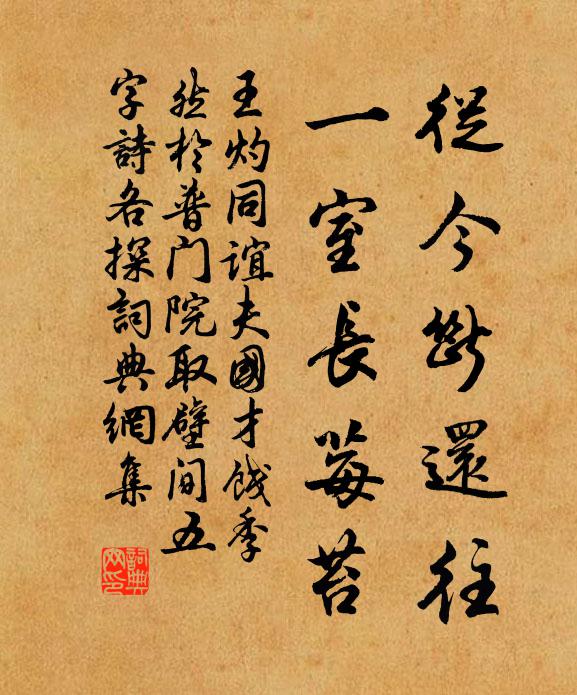 從今斷還往
一室長莓苔
王灼同誼夫國才餞季
然於普门院取壁间五
字詩各探詞典網集
詞典网印